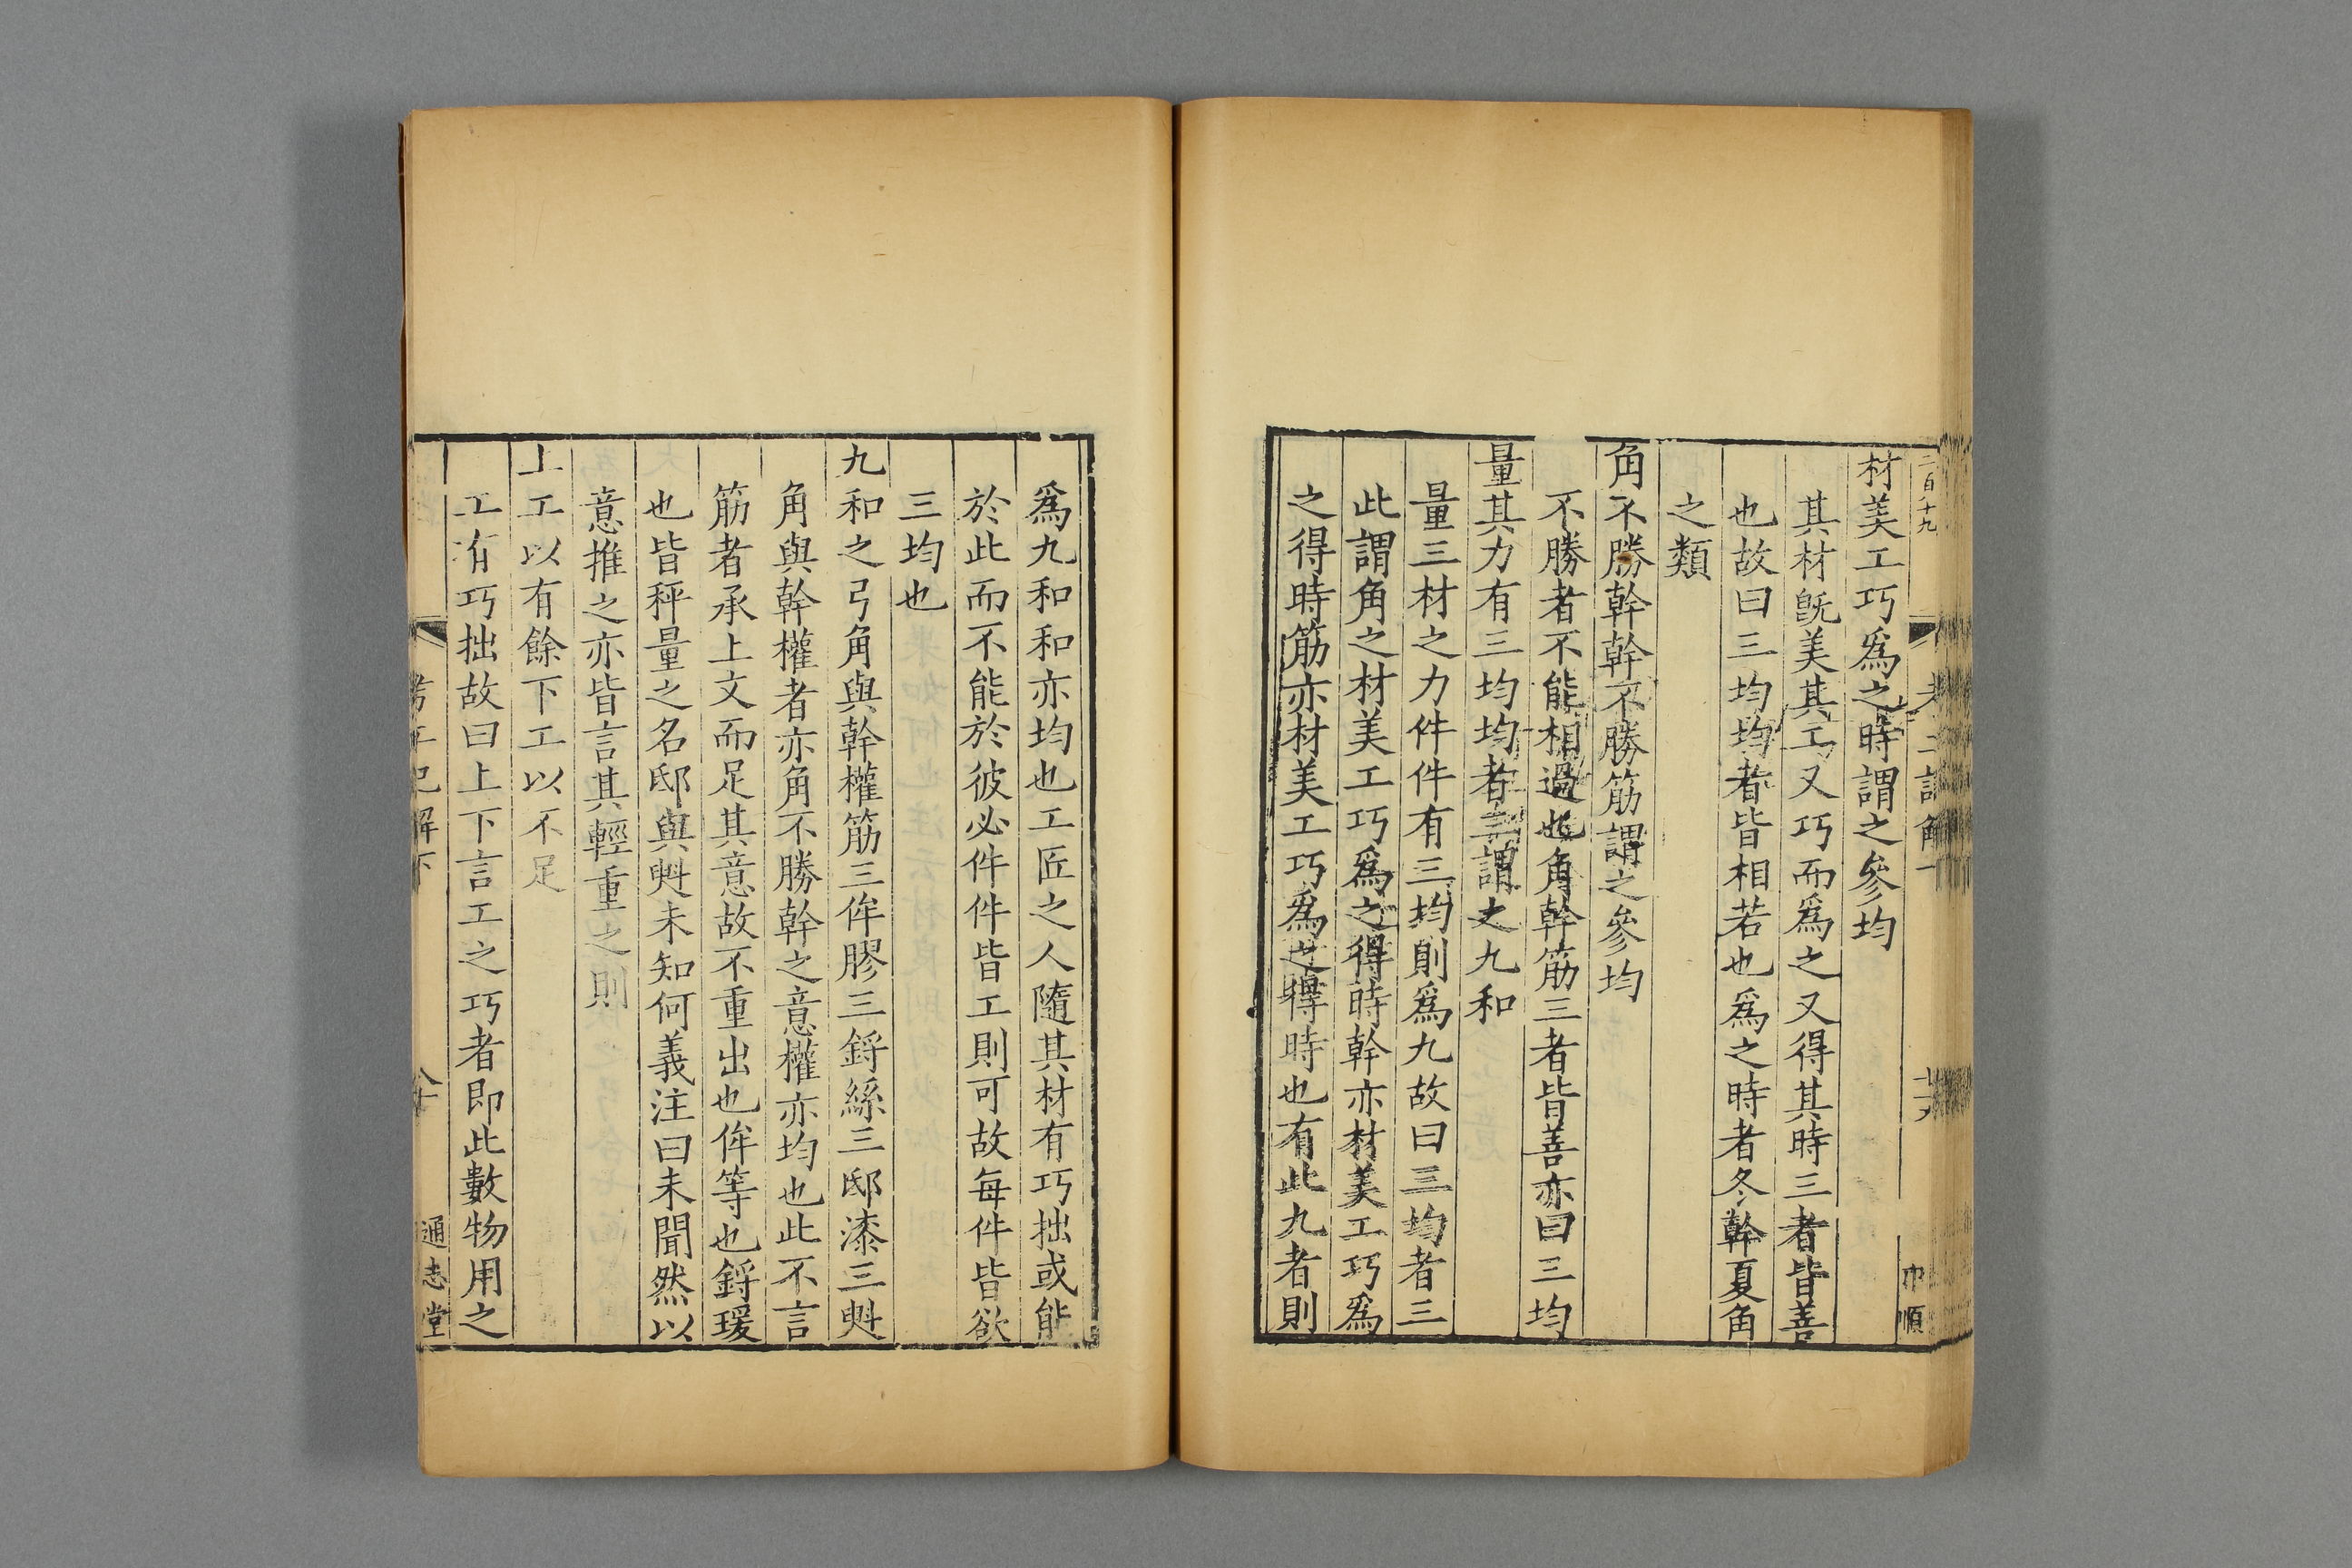 材美工巧爲之時謂之參均
其材旣美其工又巧而爲之又得其時三者皆善
也故曰三均均者皆相若也爲之時者冬幹夏角
之類
角不勝幹幹不勝筋謂之參均
不勝者不能相過也角幹筋三者皆善亦曰三均
量其力有三均均者三謂之九和
量三材之力件件有三均則爲九故曰三均者三
此謂角之材美工巧爲之得時幹亦材美工巧爲
之得時筋亦材美工巧爲之得時也有此九者則
爲九和和亦均也工匠之人隨其材有巧拙或能
於此而不能於彼必件件皆工則可故每件皆欲
三均也
九和之弓角與幹權筋三侔膠三鋝絲三邸漆三㪺
角與幹權者亦角不勝幹之意權亦均也此不言
筋者承上文而足其意故不重出也侔等也鋝瑗
也皆秤量之名邸與㪺未知何義注曰未聞然以
意推之亦皆言其輕重之則
上工以有餘下工以不足
工有巧拙故曰上下言工之巧者即此數物用之
通志堂